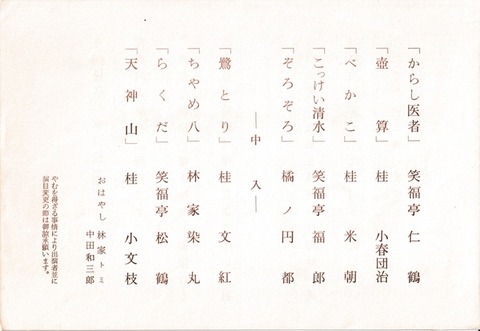 「からし医者」 笑福亭 仁鶴
「壺算」 桂 小春団治
「べかこ」 桂 米朝
「こっけい清水」 笑福亭 福郎
「ぞろぞろ」 橘ノ円都
―中入―
「鷺とり」 桂 文紅
「ちやめ八」 林家 染丸
「らくだ」 笑福亭 松鶴
「天神山」 桂 小文枝
おはやし 林家トミ
中田和三郎
やむを得ざる事情により出演者並に
演目変更の節は御諒承願います。